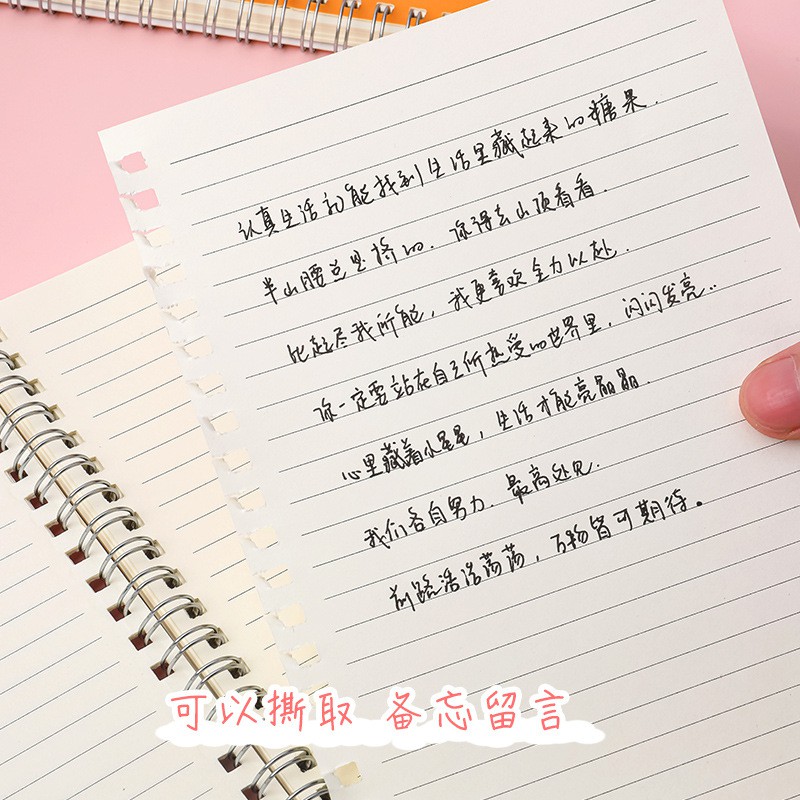 认真生活就能找到生活里藏起来的糖果.
半山腰总是挤的.你得去山顶看看.
比起尽我所能,我更喜欢全力以赴.
你一定要站在自己所热爱的世界里,闪闪发亮..
心里藏着小星星,生活才能亮晶晶.
我们各自努力.最高处见.
前路浩浩荡荡,万物皆可期待。
可以撕取 备忘留言